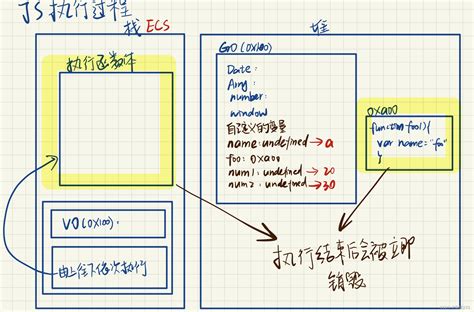 JS执行过程
栈 ECS
堆
执行函数体
VO(0X100):
由上往下依次执行
GO(0x100)
Date:
Array:
number:
window
自定义的变量
name:undefined→a
foo: 0xa00
num1: undefined→20
num2: undefined→30
0xa00
function foo(){
var name:"foo"
}
执行结束后会被立即
销毁